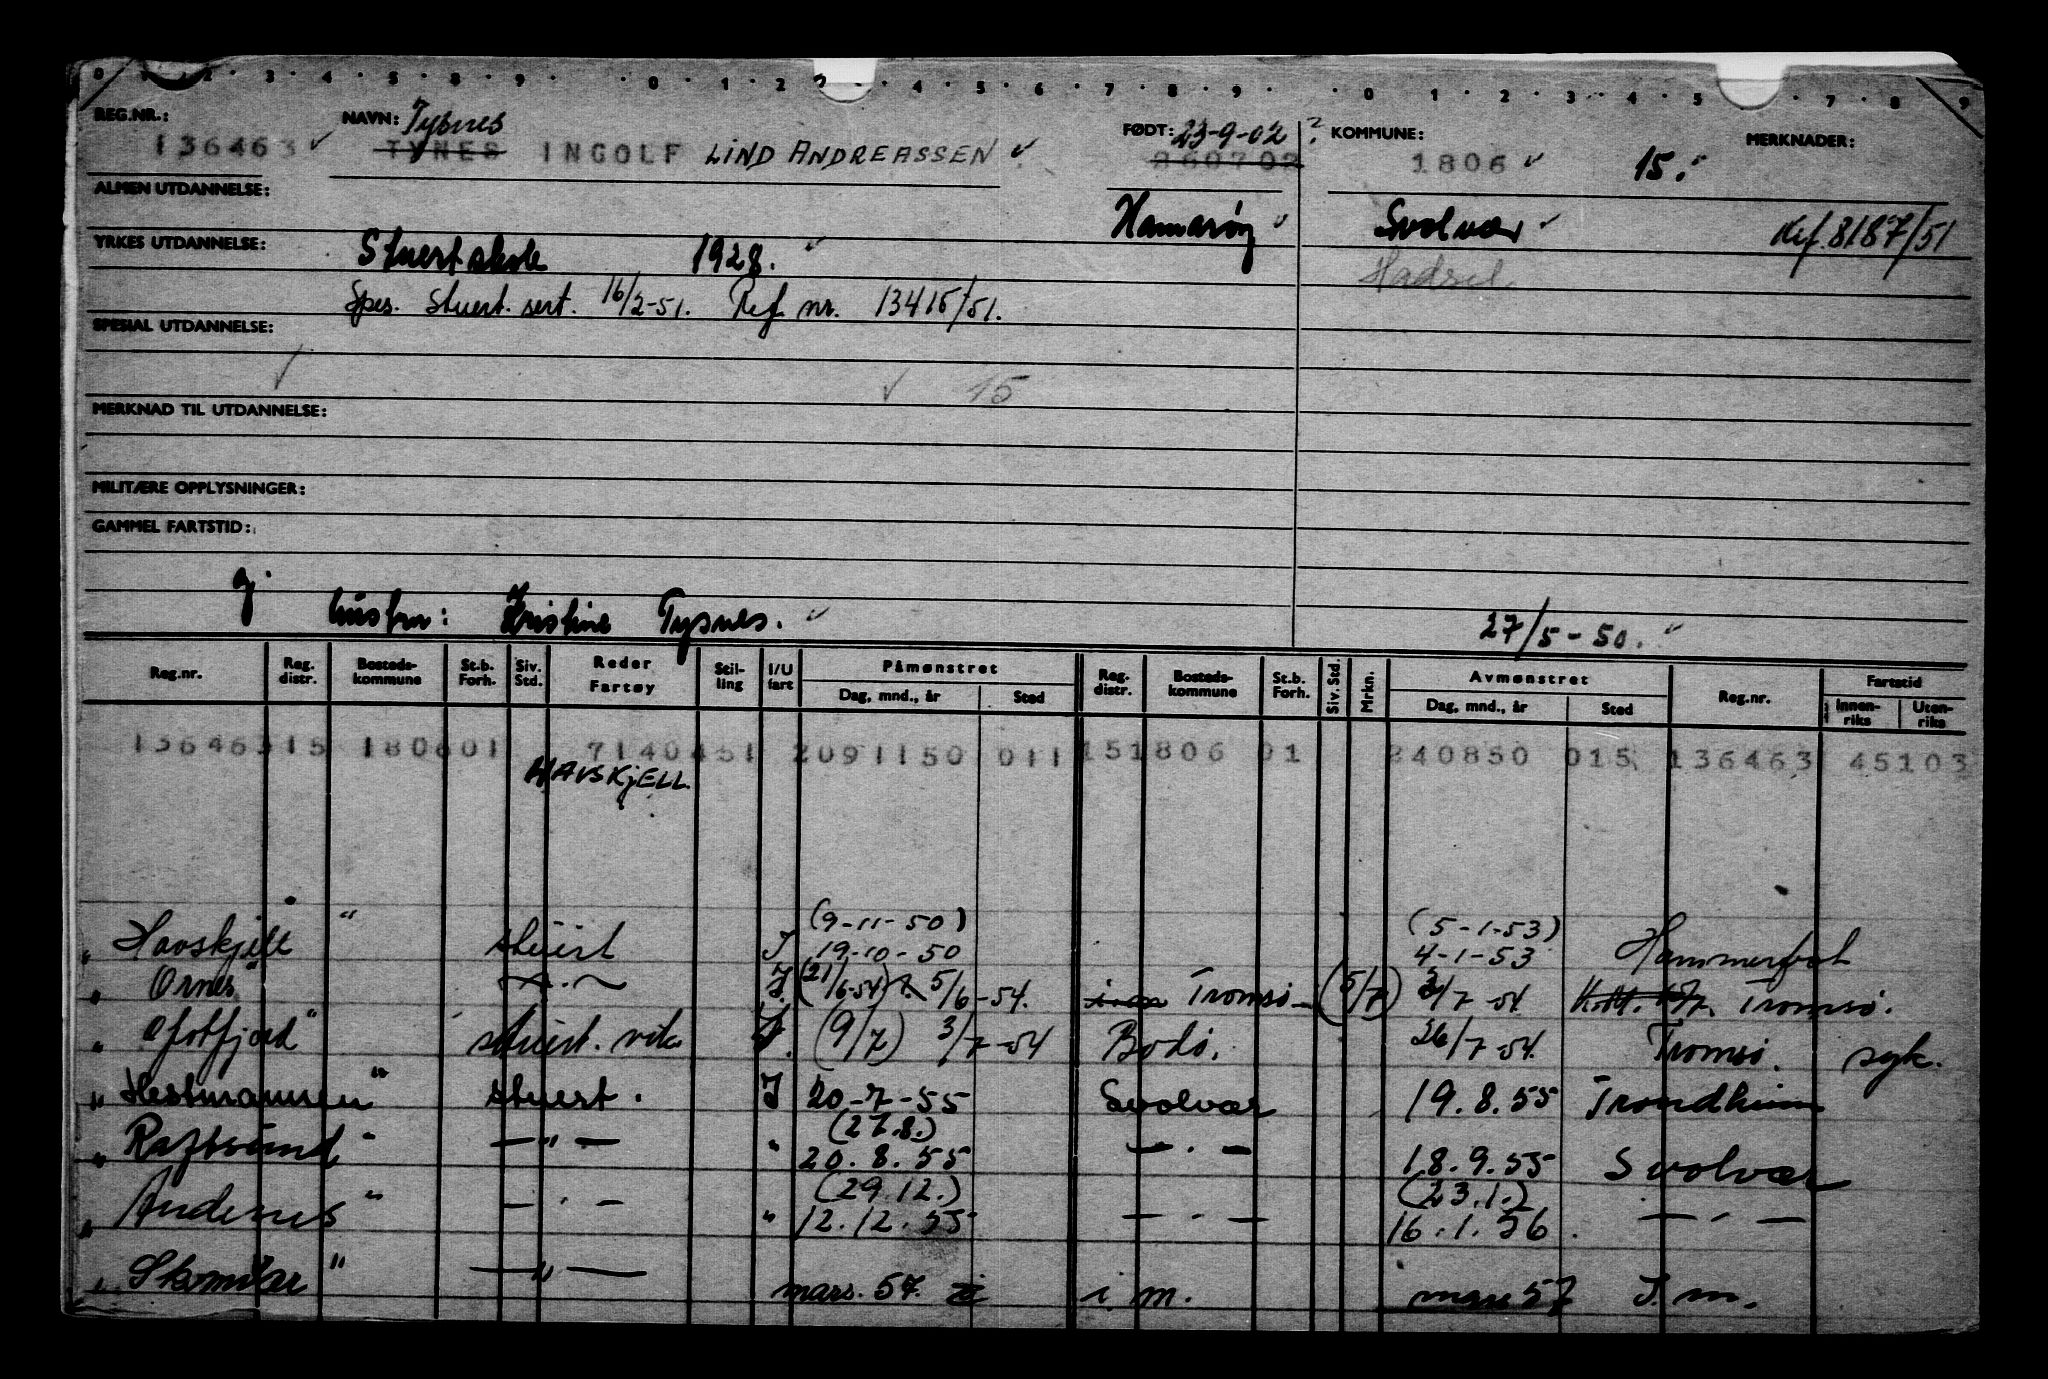 0 · 1 · 2 · 3 · 4 · 5 · 8 · 9 · 0 · 1 · 2 3 · 4 · 5 · 6 · 7 · 8 · 9 · 0 · 1 · 2 · 3 · 4 · 5 7 · 8 · 9
REG.NR.: NAVN: Tysnes FØDT: 23-9-02 ? KOMMUNE: MERKNADER:
136463 ✓ TYNES INGOLF LIND ANDREASSEN ✓ 260702 1806 ✓ 15.
ALMEN UTDANNELSE:
Hamarøy ✓ Svolvær ✓ Ref. 8187/51
YRKES UTDANNELSE: Stuertskole 1928. ✓ Hadsel
Spes. Stuert. sert. 16/2-51. Ref nr. 13415/51.
SPESIAL UTDANNELSE:
✓ ✓ 15
MERKNAD TIL UTDANNELSE:
MILITÆRE OPPLYSNINGER:
GAMMEL FARTSTID:
g. hustru: Kristine Tysnes. ✓ 27/5-50. ✓
Reg.nr. Reg. distr. Bosteds- kommune St.b. Forh. Siv. Std. Reder Fartøy Stil- ling I/U fart Påmønstret Dag, mnd., år Sted Reg. distr. Bosteds- kommune St.b. Forh. Siv. Std. Mrkn. Avmønstret Dag, mnd., år Sted Reg.nr. Fartstid Innen- riks Uten- riks
13646315 180601 7140451 2091150 011 151806 01 240850 015 136463 45103
HAVSKJELL.
(9-11-50) (5-1-53)
" Havskjell " stuert I 19-10-50 4-1-53 Hammerfest
" Ornes" I. (21/6-54) 5/6-54. Tromsø (5/7) 3/7-54 Tromsø.
" Ofotfjord" stuert. vik. I. (9/7) 3/7-54 Bodø. 26/7-54. Tromsø. syk.
" Hestmannen " stuert. I 20-7-55 Svolvær 19.8.55 Trondheim
(27.8.)
" Raftsund " — " — " 20.8.55 — · — 18.9.55 Svolvær
(29.12.) (23.1.)
" Andenes " — · — " 12.12.55 — · — 16.1.56. — · —
" Skomvær " — " — mars. 57. i. m. mars 57 I. m.